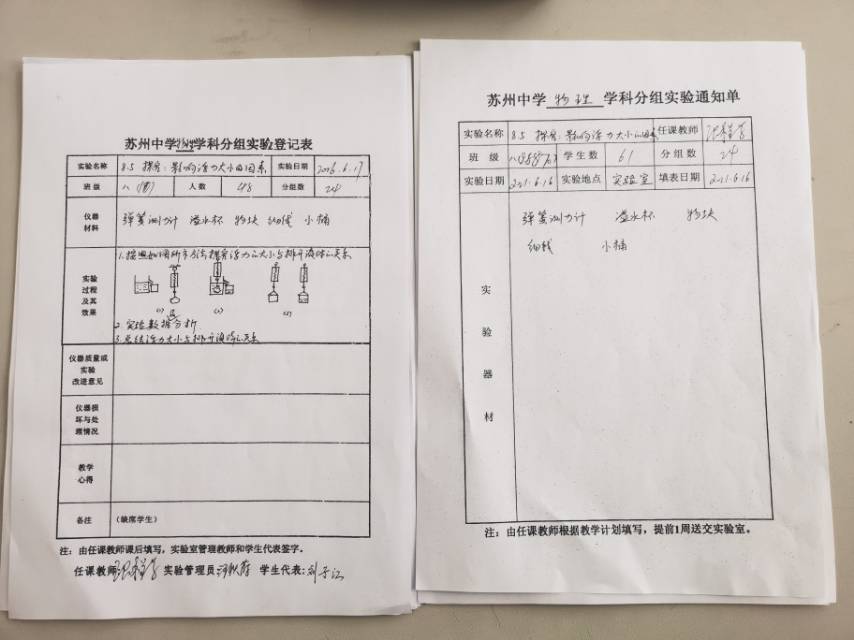 苏州中学物理学科分组实验登记表
实验名称 8.5 探究:影响浮力大小的因素 实验日期
班级 人数 48 分组数 24
仪器材料 弹簧测力计 溢水杯 物块 细线 小桶
实验过程及其效果
1.按照如图所示方法探究浮力的大小与排开液体的关系
(1) (2) (3)
2.实验数据分析
3.总结浮力大小与排开液体的关系
仪器质量或实验改进意见
仪器损坏与处理情况
教学心得
备注 (缺席学生)
注:由任课教师课后填写,实验室管理教师和学生代表签字。
任课教师: 实验管理员: 学生代表:
苏州中学 物理 学科分组实验通知单
实验名称 8.5 探究:影响浮力大小的因素 任课教师
班级 学生数 61 分组数 24
实验日期 实验地点 实验室 填表日期
实验器材
弹簧测力计 溢水杯 物块
细线 小桶
注:由任课教师根据教学计划填写,提前1周送交实验室。